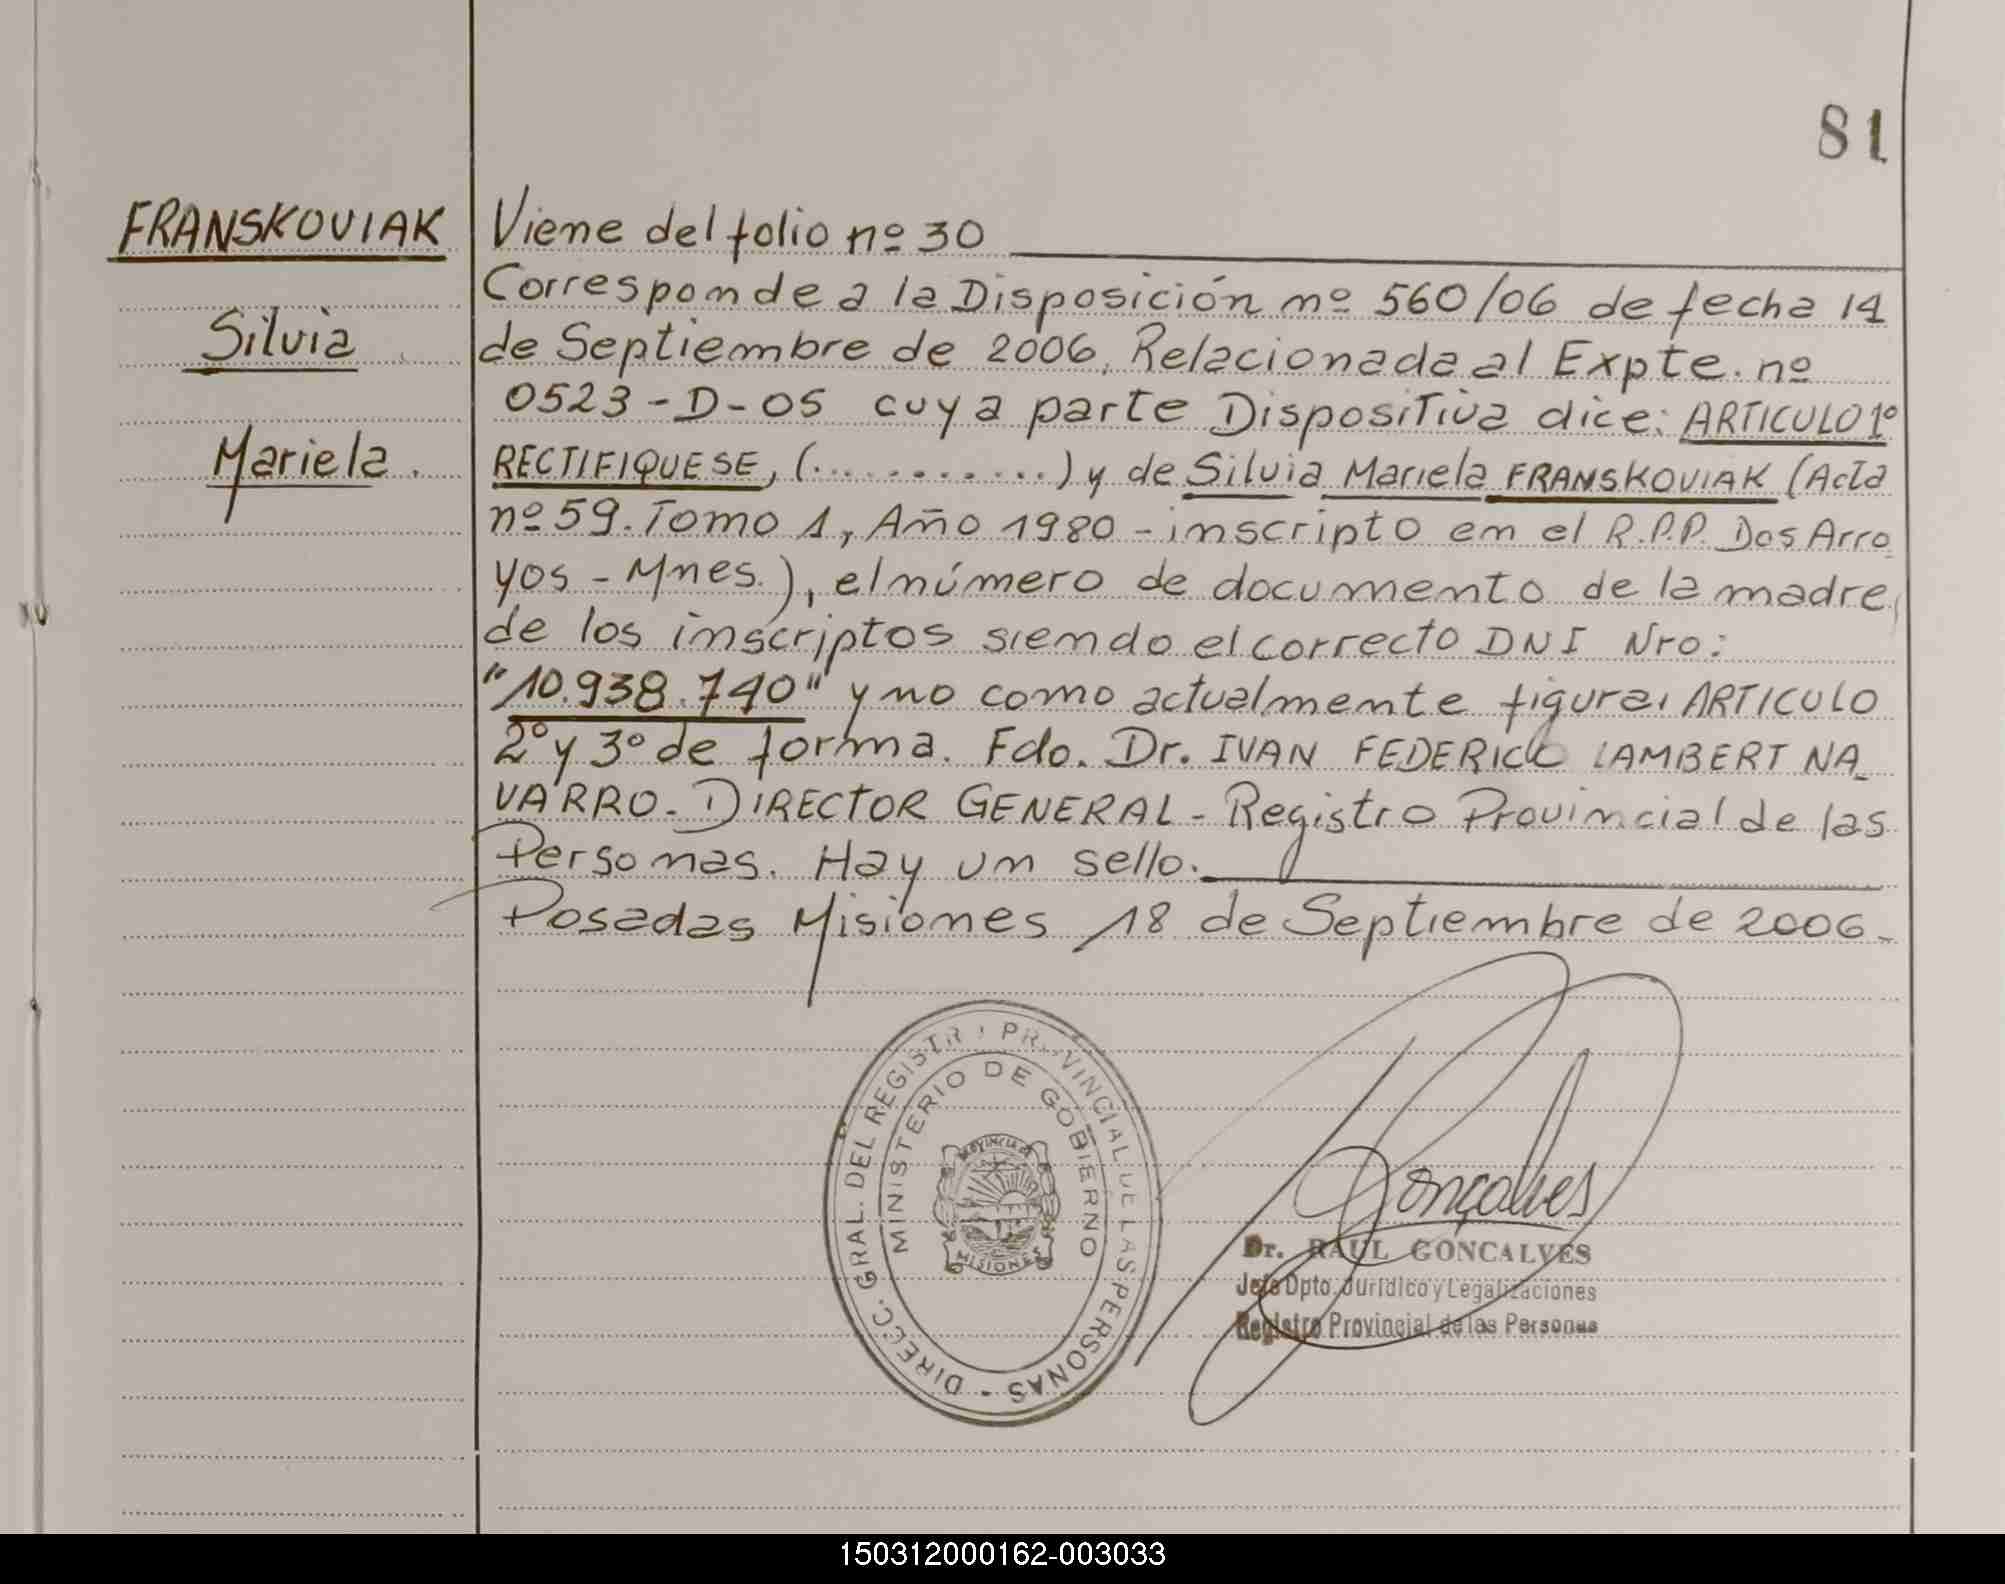 81
FRANSKOVIAK
Silvia
Mariela.
Viene del folio nº 30
Corresponde a la Disposición nº 560/06 de fecha 14
de Septiembre de 2006. Relacionada al Expte. nº
0523-D-05 cuya parte Dispositiva dice: ARTICULO 1º
RECTIFIQUESE, (...........) y de Silvia Mariela FRANSKOVIAK (Acta
nº 59. Tomo 1, Año 1980 - inscripto en el R.P.P. Dos Arro
yos - Mnes.), el número de documento de la madre
de los inscriptos siendo el correcto DNI Nro:
"10.938.740" y no como actualmente figura. ARTICULO
2º y 3º de forma. Fdo. Dr. IVAN FEDERICO LAMBERT NA_
VARRO. DIRECTOR GENERAL - Registro Provincial de las
Personas. Hay un sello.
Posadas Misiones 18 de Septiembre de 2006-
DIRECC. GRAL. DEL REGISTRO PROVINCIAL DE LAS PERSONAS -
MINISTERIO DE GOBIERNO
PROVINCIA DE
MISIONES
Gonçalves
Dr. RAUL GONCALVES
Jefe Dpto. Jurídico y Legalizaciones
Registro Provincial de las Personas
150312000162-003033